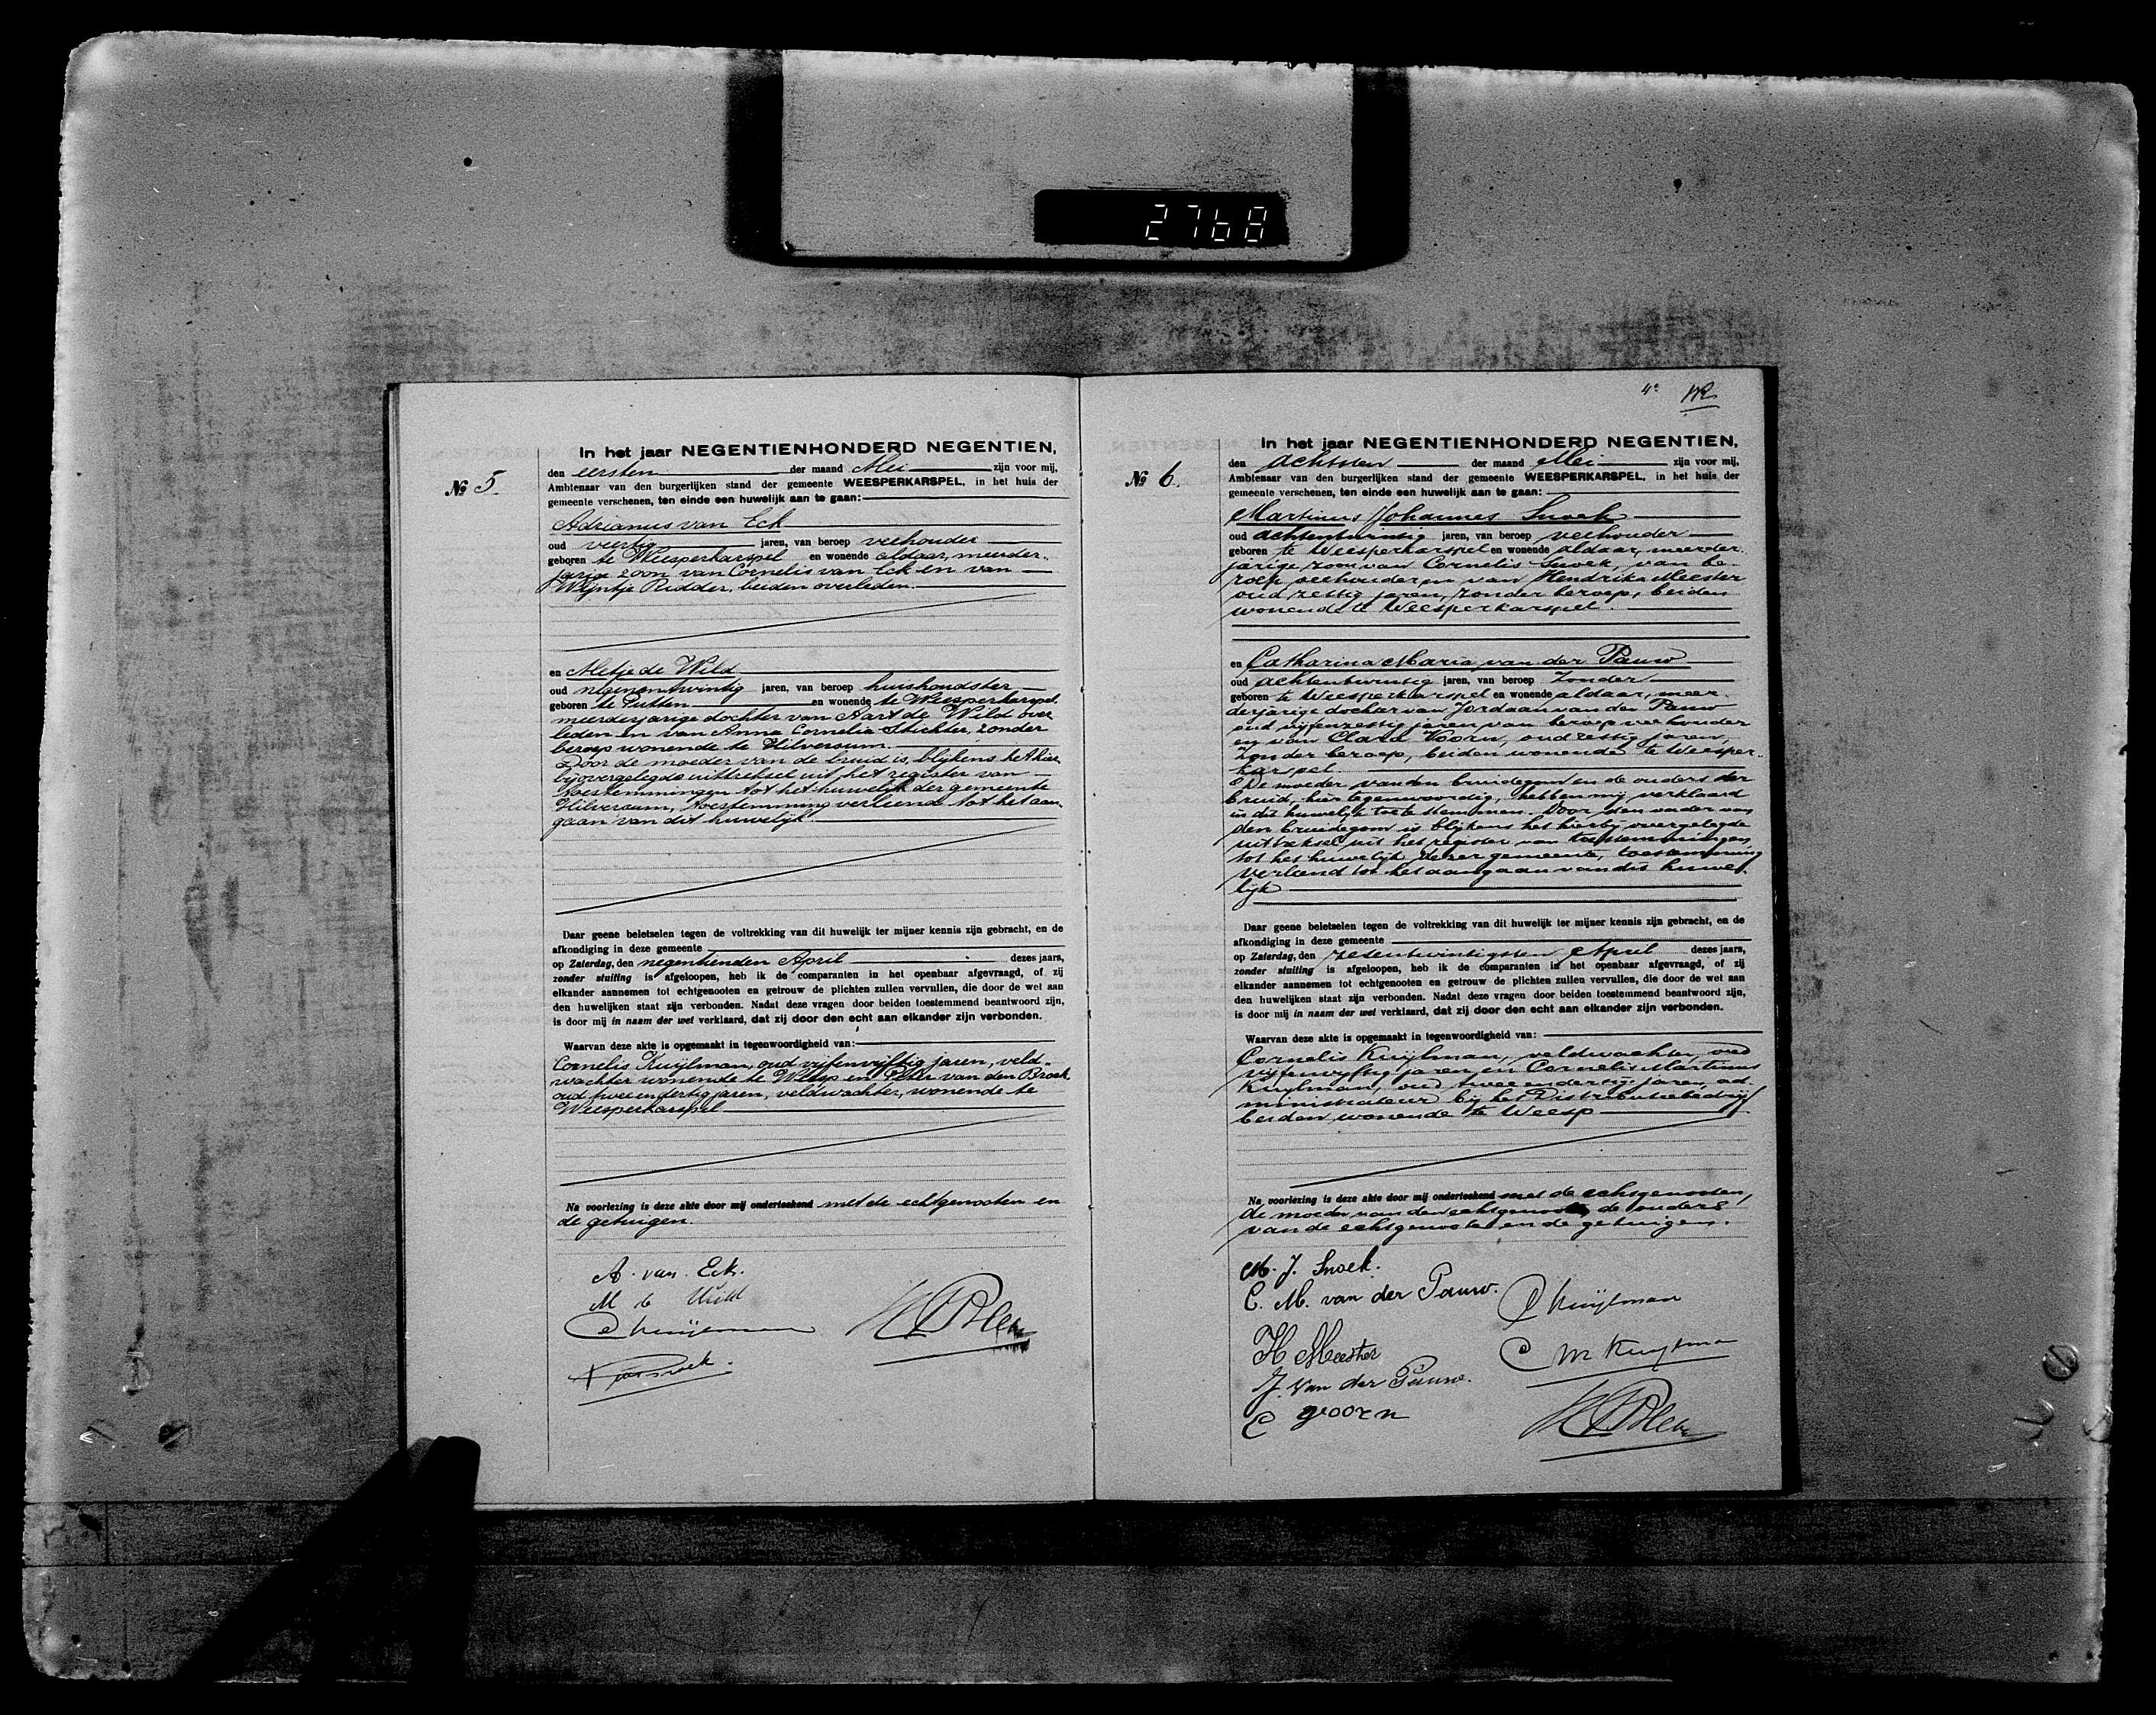 2768
In het jaar NEGENTIENHONDERD NEGENTIEN,
№ 5.
den eersten der maand Mei zijn voor mij,
Ambtenaar van den burgerlijken stand der gemeente WEESPERKARSPEL, in het huis der
gemeente verschenen, ten einde een huwelijk aan te gaan:
Adrianus van Eck
oud veertig jaren, van beroep veehouder
geboren te Weesperkarspel en wonende aldaar, meerder-
jarige zoon van Cornelis van Eck en van
Wijntje Ridder, beiden overleden.
en Metje de Wild
oud negenentwintig jaren, van beroep huishoudster
geboren te Putten en wonende te Weesperkarspel
meerderjarige dochter van Aart de Wild over
leden en van Anna Cornelia Stichter, zonder
beroep wonende te Hilversum.
Door de moeder van de bruid is, blijkens het hier
bijovergelegde uittreksel uit het register van
toestemmingen tot het huwelijk der gemeente
Hilversum, toestemming verleend tot het aan
gaan van dit huwelijk.
Daar geene beletselen tegen de voltrekking van dit huwelijk ter mijner kennis zijn gebracht, en de
afkondiging in deze gemeente
op Zaterdag, den negentienden April dezes jaars,
zonder stuiting is afgeloopen, heb ik de comparanten in het openbaar afgevraagd, of zij
elkander aannemen tot echtgenooten en getrouw de plichten zullen vervullen, die door de wet aan
den huwelijken staat zijn verbonden. Nadat deze vragen door beiden toestemmend beantwoord zijn,
is door mij in naam der wet verklaard, dat zij door den echt aan elkander zijn verbonden.
Waarvan deze akte is opgemaakt in tegenwoordigheid van:
Cornelis Kuijlman, oud vijfenvijftig jaren, veld-
wachter wonende te Weesp en Peter van den Broek,
oud twee en dertig jaren, veldwachter, wonende te
Weesperkarspel
Na voorlezing is deze akte door mij onderteekend met de echtgenooten en
de getuigen.
A. van Eck.
M de Wild
C Kuijlman
4e
In het jaar NEGENTIENHONDERD NEGENTIEN,
№ 6.
den achtsten der maand Mei zijn voor mij,
Ambtenaar van den burgerlijken stand der gemeente WEESPERKARSPEL, in het huis der
gemeente verschenen, ten einde een huwelijk aan te gaan:
Martinus Johannes Snoek
oud achtentwintig jaren, van beroep veehouder
geboren te Weesperkarspel en wonende aldaar, meerder-
jarige zoon van Cornelis Snoek, van be-
roep veehouder en van Hendrika Meester
oud zestig jaren, zonder beroep, beiden
wonende te Weesperkarspel.
en Catharina Maria van der Pauw
oud achtentwintig jaren, van beroep zonder
geboren te Weesperkarspel en wonende aldaar, meer
derjarige dochter van Jordaan van der Pauw
oud vijfenzestig jaren van beroep veehouder
en van Clara Voorn, oud zestig jaren,
zonder beroep, beiden wonende te Weesper-
karspel.
De moeder van den bruidegom en de ouders der
bruid, hier tegenwoordig, hebben mij verklaard
in dit huwelijk toe te stemmen. Door den vader van
den bruidegom is blijkens het hierbij overgelegde
uittreksel uit het register van toestemmingen
tot het huwelijk dezer gemeente, toestemming
verleend tot het aangaan van dit huwe-
lijk
Daar geene beletselen tegen de voltrekking van dit huwelijk ter mijner kennis zijn gebracht, en de
afkondiging in deze gemeente
op Zaterdag, den zesentwintigsten April dezes jaars,
zonder stuiting is afgeloopen, heb ik de comparanten in het openbaar afgevraagd, of zij
elkander aannemen tot echtgenooten en getrouw de plichten zullen vervullen, die door de wet aan
den huwelijken staat zijn verbonden. Nadat deze vragen door beiden toestemmend beantwoord zijn,
is door mij in naam der wet verklaard, dat zij door den echt aan elkander zijn verbonden.
Waarvan deze akte is opgemaakt in tegenwoordigheid van:
Cornelis Kuijlman, veldwachter, oud
vijfenvijftig jaren en Cornelis Martinus
Kuijlman, oud twee en dertig jaren, ad-
ministrateur bij het Distributiebedrijf
beiden wonende te Weesp
Na voorlezing is deze akte door mij onderteekend met de echtgenooten,
de moeder van den echtgenoot, de ouders
van de echtgenoote en de getuigen.
M. J. Snoek.
C. M. van der Pauw.
C Kuijlman
H Meester
C M Kuijlman
J. van der Pauw.
C Voorn